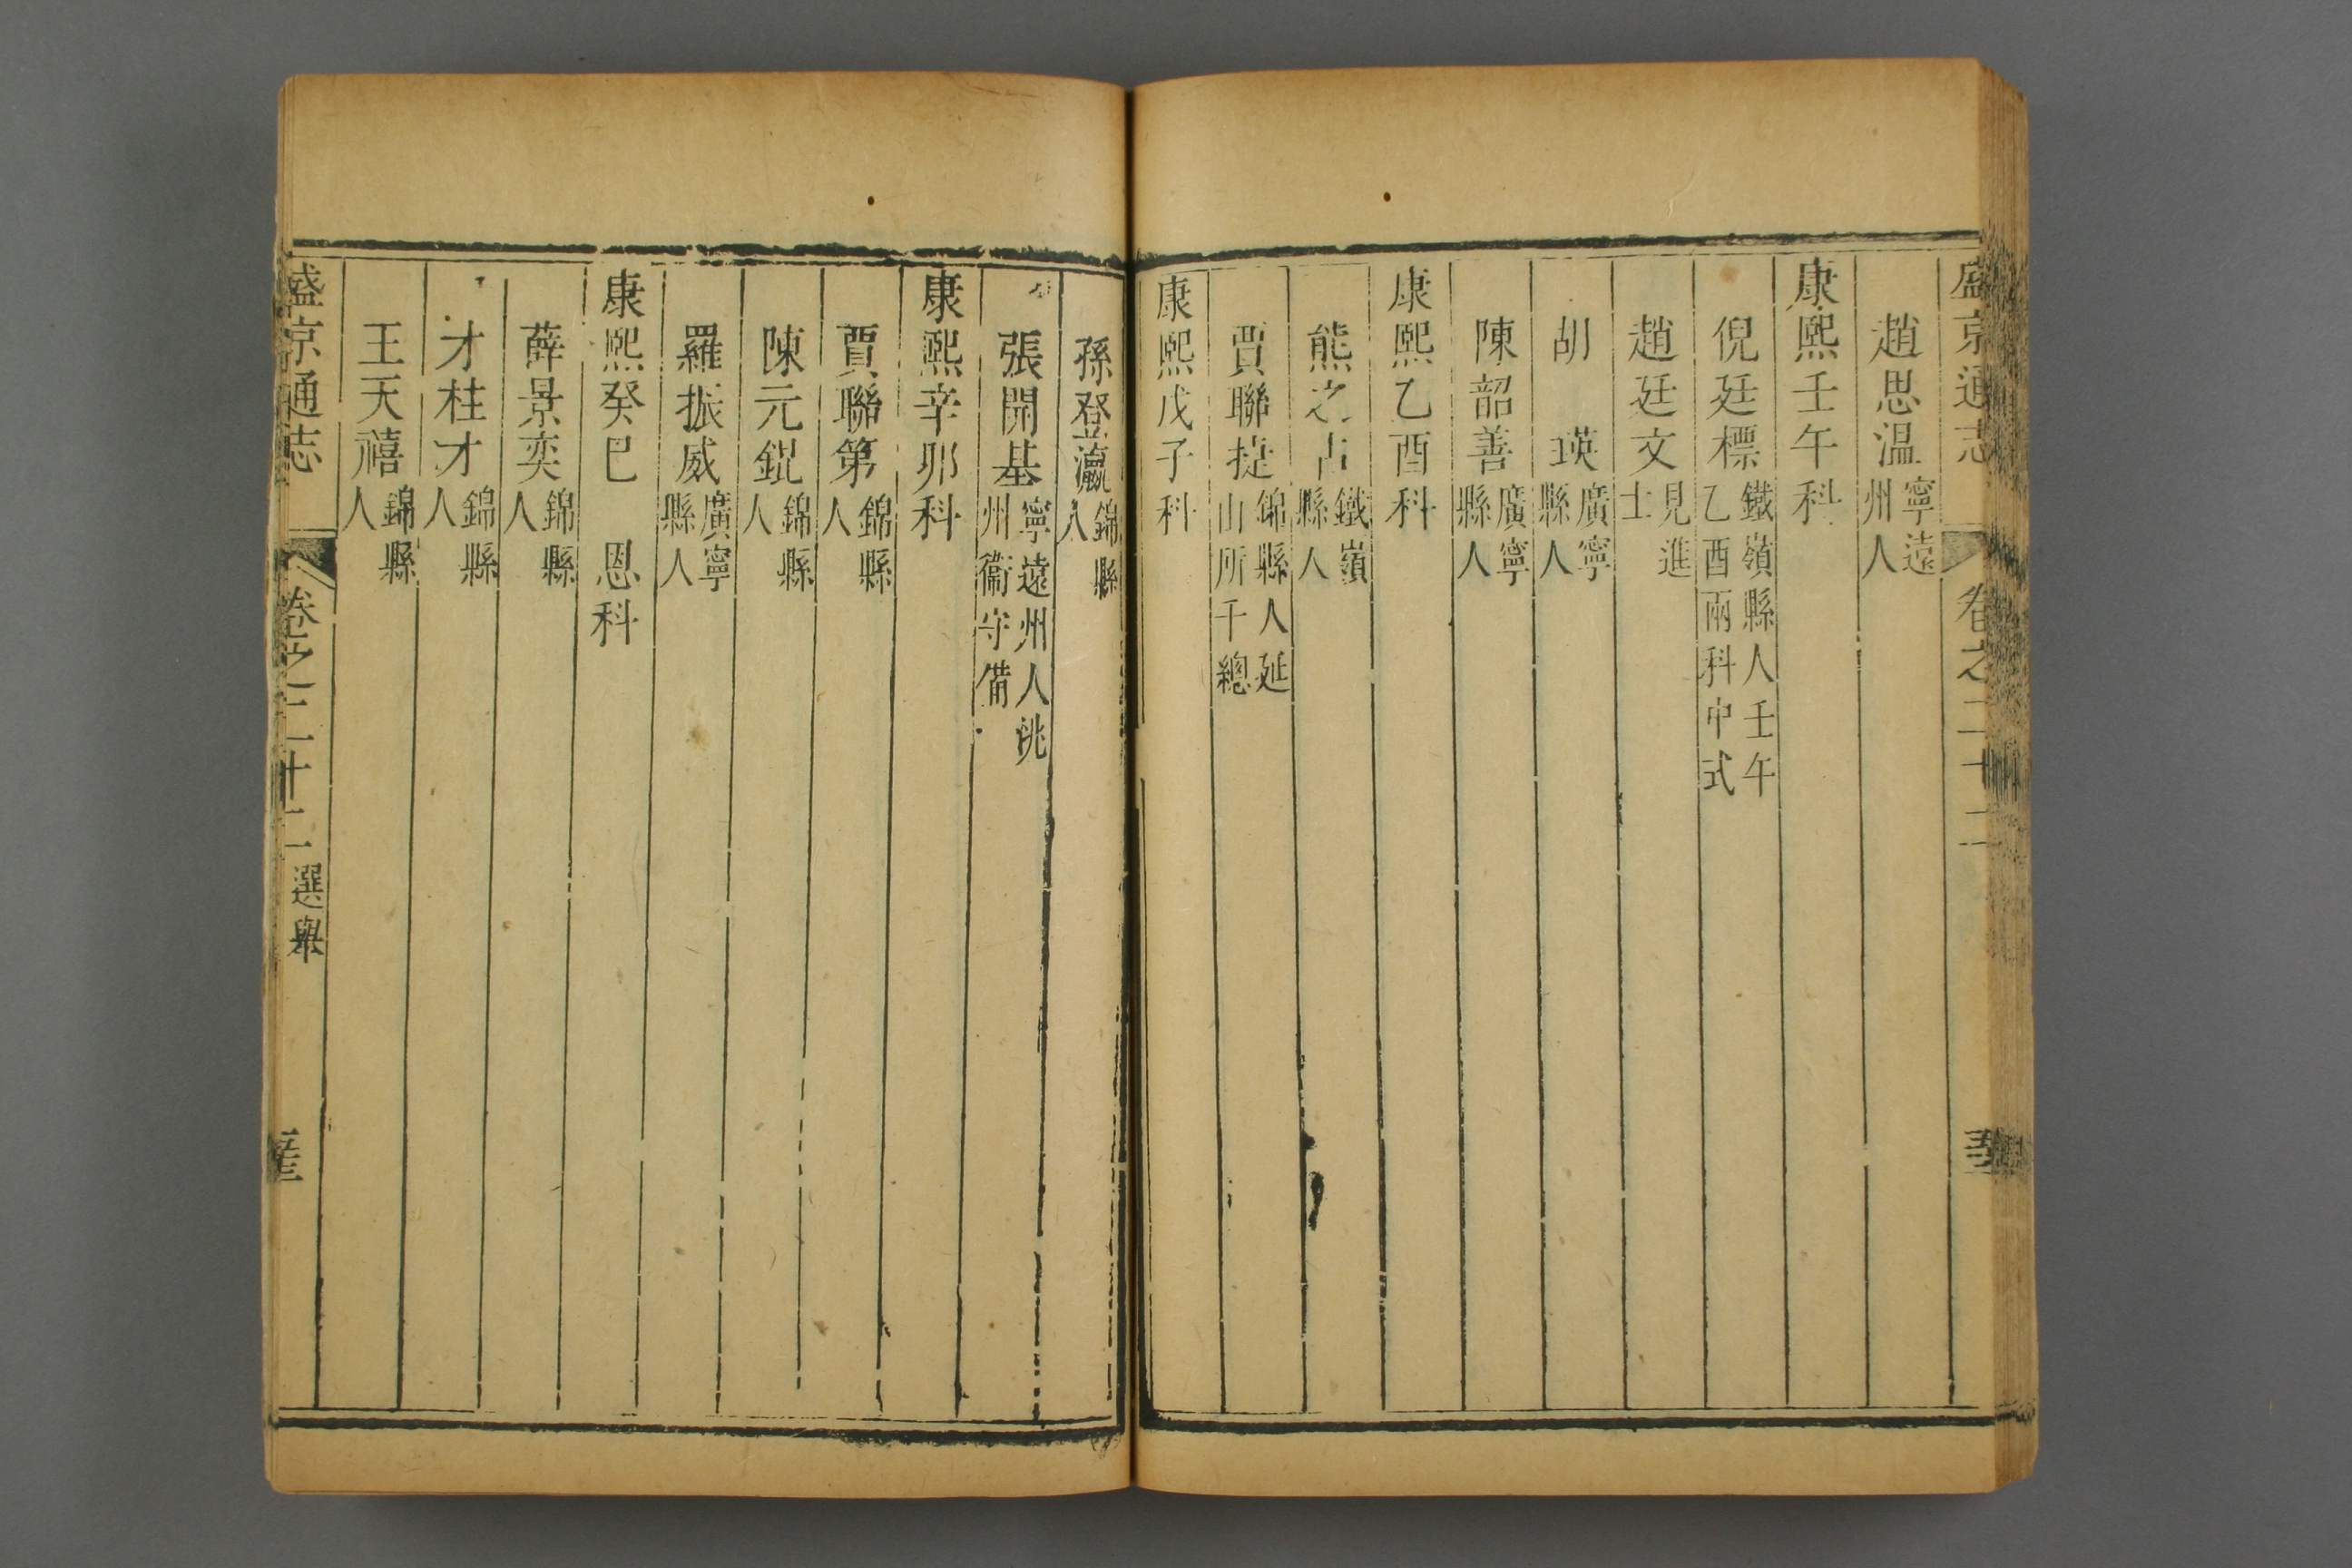 盛京通志 卷之二十二
趙思温 寧遠州人
康熙壬午科
倪廷標 鐵嶺縣人壬午乙酉兩科中式
趙廷文 見進士
胡 瑛 廣寧縣人
陳韶善 廣寧縣人
康熙乙酉科
熊之占 鐵嶺縣人
賈聯捷 錦縣人延山所千總
康熙戊子科
孫登瀛 錦縣人
張開基 寧遠州人洮州衞守備
康熙辛卯科
賈聯第 錦縣人
陳元錕 錦縣人
羅振威 廣寧縣人
康熙癸巳 恩科
薛景奕 錦縣人
才桂才 錦縣人
王天禧 錦縣人
盛京通志 卷之二十二 選舉